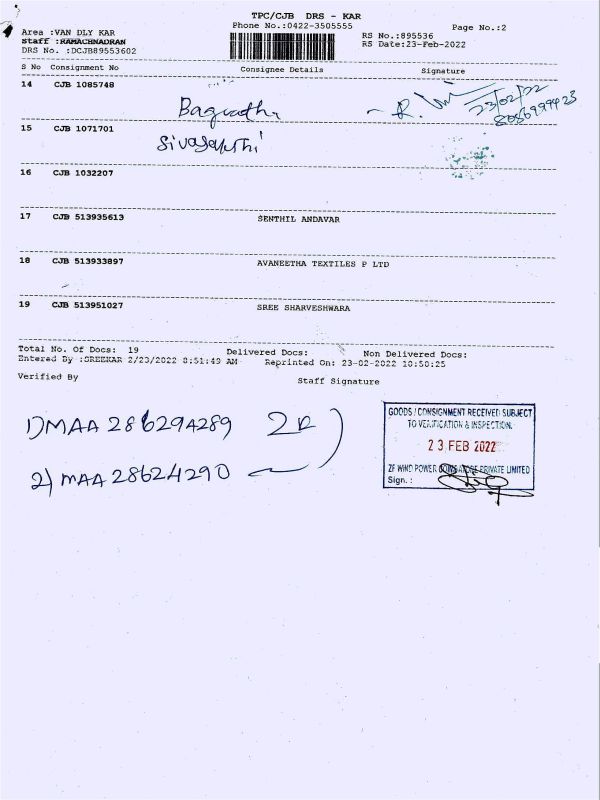 TPC/CJB DRS - KAR
Phone No.:0422-3505555 Page No.:2
Area :VAN DLY KAR RS No.:895536
Staff :RAMACHNADRAN RS Date:23-Feb-2022
DRS No. :DCJB89553602
S No Consignment No Consignee Details Signature
14 CJB 1085748
23/02/22
15 CJB 1071701
16 CJB 1032207
17 CJB 513935613 SENTHIL ANDAVAR
18 CJB 513933897 AVANEETHA TEXTILES P LTD
19 CJB 513951027 SREE SHARVESHWARA
Total No. Of Docs: 19 Delivered Docs: Non Delivered Docs:
Entered By :SREEKAR 2/23/2022 8:51:49 AM Reprinted On: 23-02-2022 10:50:25
Verified By Staff Signature
GOODS / CONSIGNMENT RECEIVED SUBJECT
TO VERIFICATION & INSPECTION.
23 FEB 2022
ZF WIND POWER COIMBATORE PRIVATE LIMITED
Sign. :
1) MAA 286294289
2) MAA 28624290